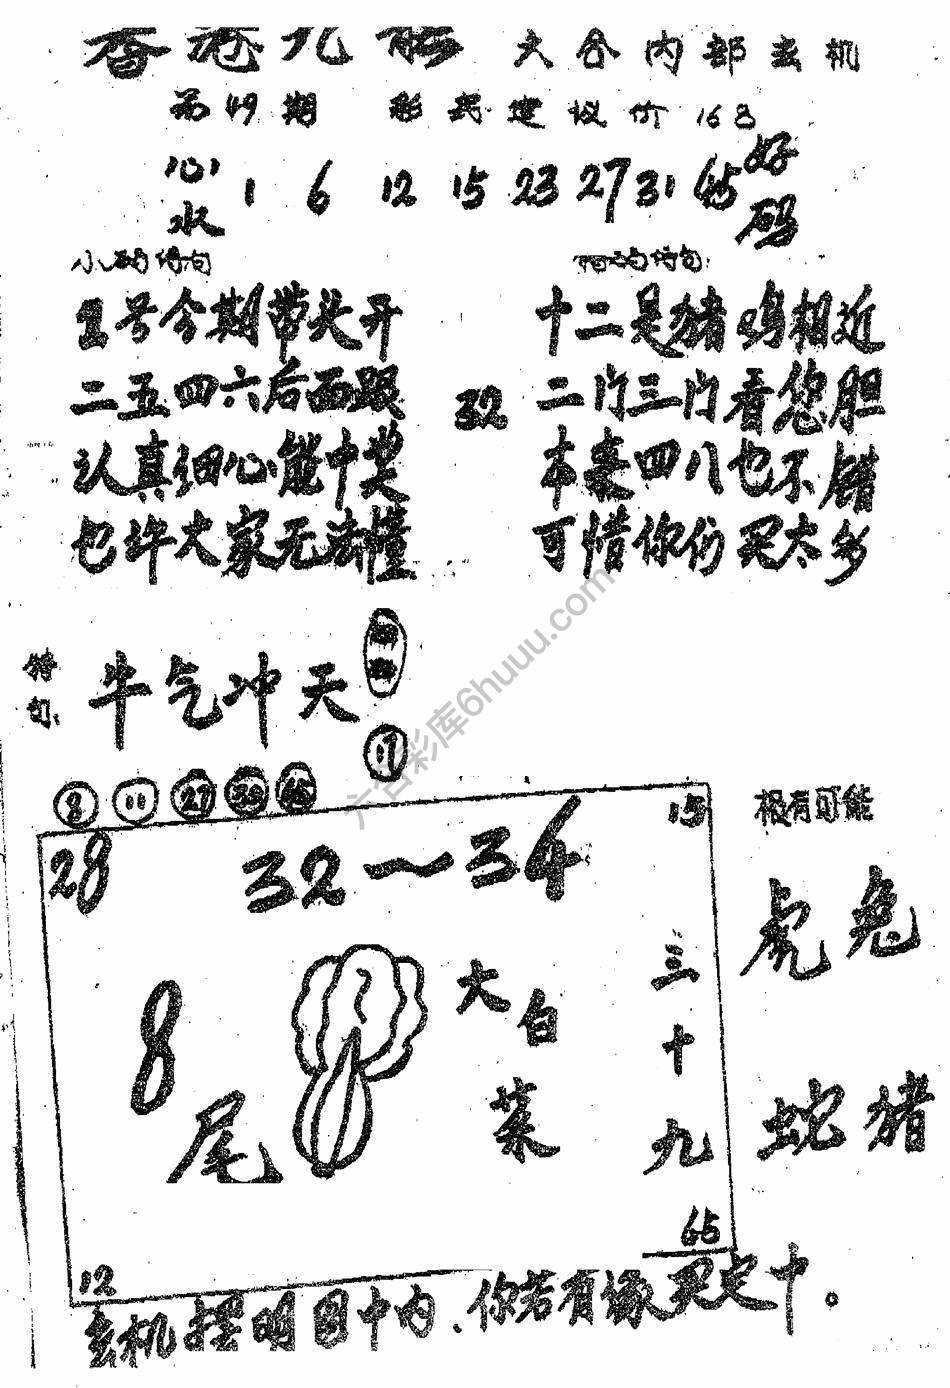 香港九龍 大合内部玄机
第49期 建议价168
心水 1 6 12 15 23 27 31 45 好码
小 诗句
1号今期带头开
二五四六后面跟
认真细心能中奖
也许大家无法懂
诗句
十二是猪鸡相近
32 二门三门看您胆
本来四八也不错
可惜你们买太多
特句: 牛气冲天
17
8 11 27 45
28 32~34 15
很有可能
虎兔
8尾
大白菜
三十九
蛇猪
12
玄机摆明图中内、你若有缘买定中。
六合彩库6huuu.com